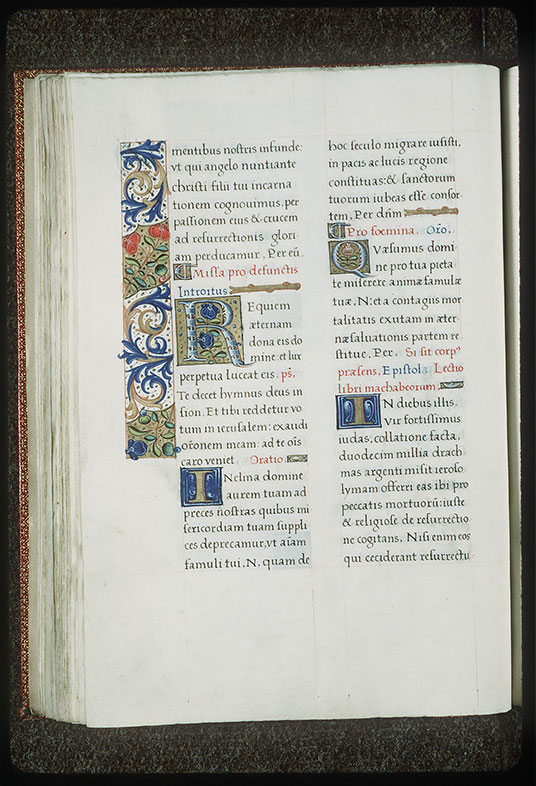 mentibus nostris infunde:
vt qui angelo nuntiante
christi filii tui incarna
tionem cognouimus, per
passionem eius & crucem
ad resurrectionis glori
am perducamur. Per eū.
Missa pro defunctis
Introitus
REquiem
æternam
dona eis do
mine: et lux
perpetua luceat eis. ps̄.
Te decet hymnus deus in
sion. Et tibi reddetur vo
tum in ierusalem: exaudi
or̄onem meam: ad te ois̄
caro veniet. Oratio.
INclina domine
aurem tuam ad
preces nostras quibus mi
sericordiam tuam suppli
ces deprecamur, vt aīam
famuli tui, N. quam de
hoc seculo migrare iussisti,
in pacis ac lucis regione
constituas: & sanctorum
tuorum iubeas esse consor
tem. Per dn̄m
Pro foemina. Oro̅.
QVæsumus domi
ne pro tua pieta
te miserere animæ famulæ
tuæ, N: et a contagiis mor
talitatis exutam in æter
næ saluationis partem re
stitue. Per. Si sit corpꝰ
præsens, Epistola. Lectio
libri machabeorum.
IN diebus illis.
Vir fortissimus
iudas, collatione facta,
duodecim millia drach
mas argenti misit ieroso
lymam offerri eas ibi pro
peccatis mortuorū: iuste
& religiose de resurrectio
ne cogitans. Nisi enim eos
qui ceciderant resurrectu